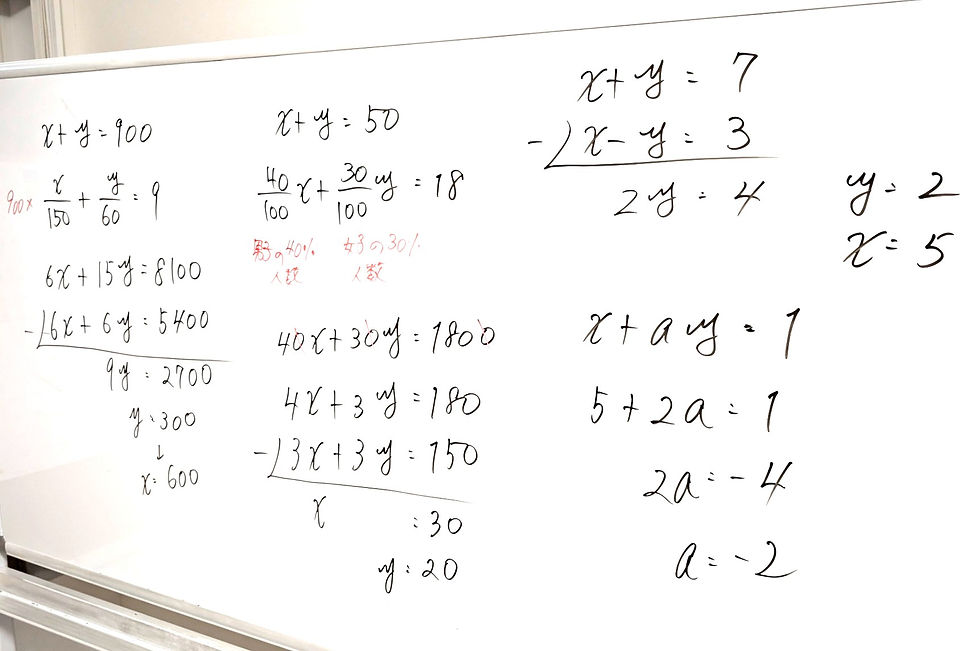 x+y=900
900× x/150 + y/60 = 9
6x+15y=8100
-)6x+6y=5400
9y=2700
y=300
↓
x=600
x+y=50
40/100 x + 30/100 y = 18
男子の40% 女子の30%
人数 人数
40x+30y=1800
4x+3y=180
-)3x+3y=150
x =30
y=20
x+y=7
-)x-y=3
2y=4
y=2
x=5
x+ay=1
5+2a=1
2a=-4
a=-2